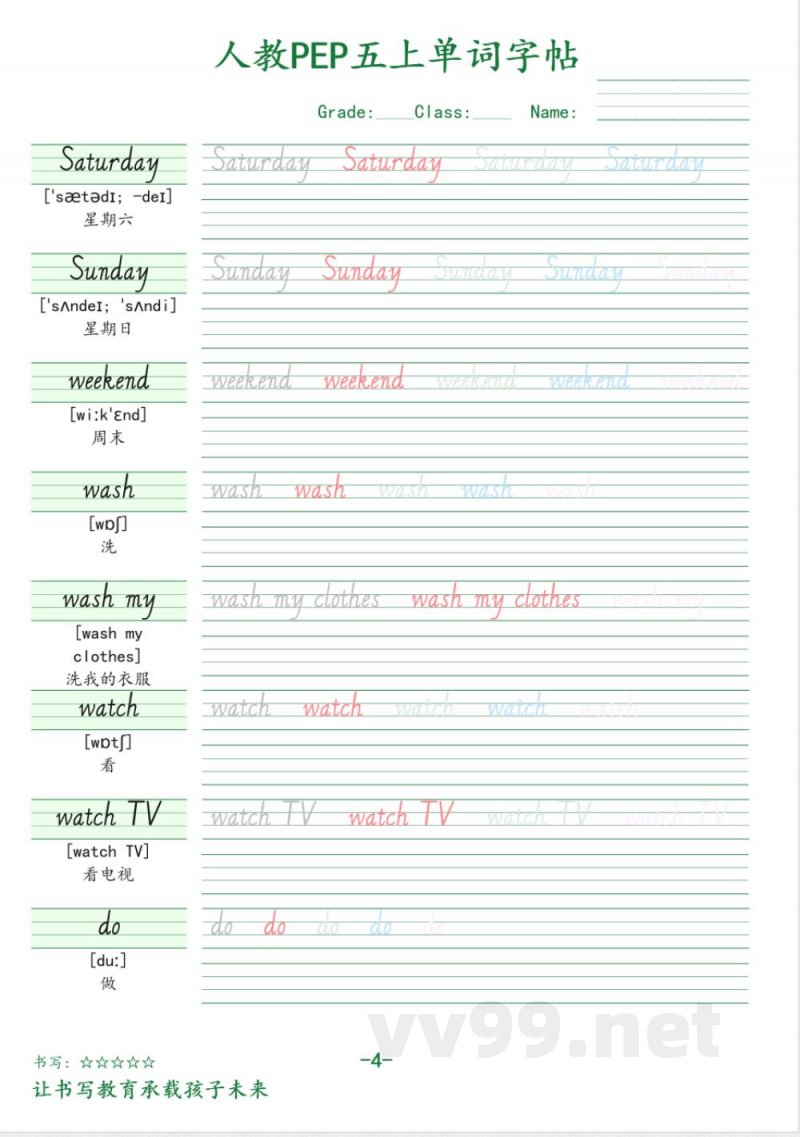 人教PEP五上单词字帖
Grade:____Class:____ Name:
Saturday Saturday Saturday Saturday Saturday
[ˈsætədɪ; -deɪ]
星期六
Sunday Sunday Sunday Sunday Sunday Sunday
[ˈsʌndeɪ; ˈsʌndi]
星期日
weekend weekend weekend weekend weekend weekend
[wiːkˈɛnd]
周末
wash wash wash wash wash wash
[wɒʃ]
洗
wash my wash my clothes wash my clothes wash my
[wash my
clothes]
洗我的衣服
watch watch watch watch watch watch
[wɒtʃ]
看
watch TV watch TV watch TV watch TV watch TV
[watch TV]
看电视
do do do do do do
[duː]
做
vv99.net
书写：☆☆☆☆☆
-4-
让书写教育承载孩子未来